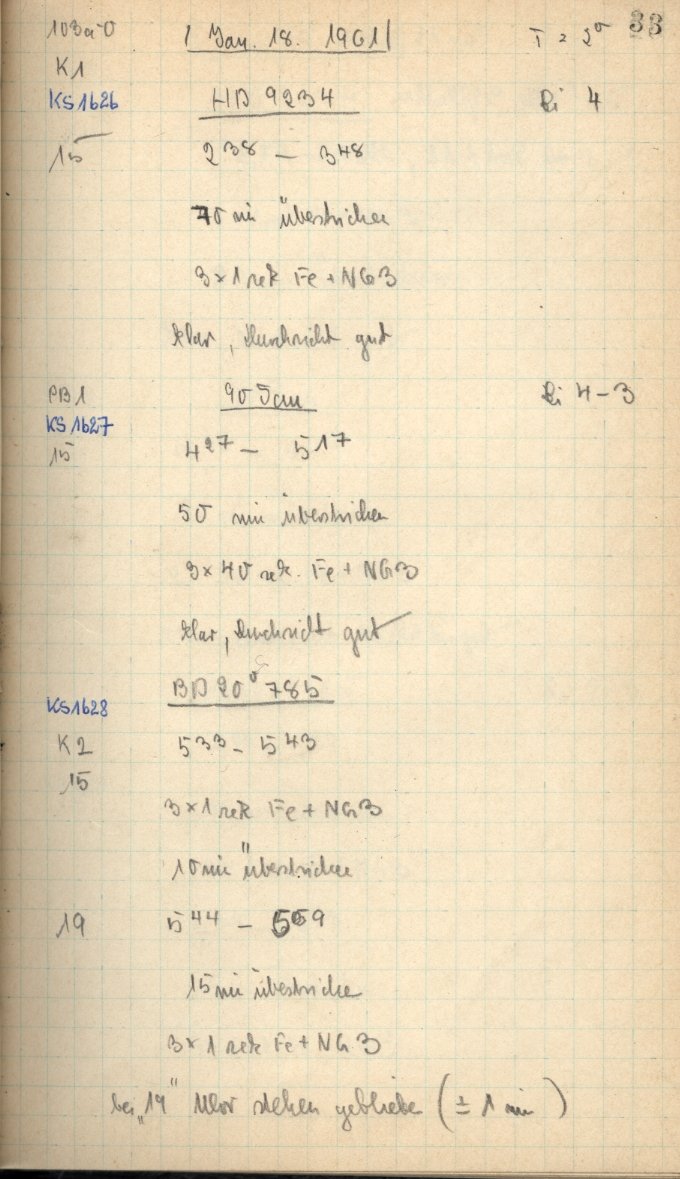 103a-O | Jan. 18. 1961 | T = 2° 33
K1
KS1626 HD 9234 Ri 4
15 2 38 – 3 48
70 min überstrichen
3×1 sek Fe + NG3
klar, Durchsicht gut
PB1 90 Ri 4-3
KS1627
15 4 27 – 5 17
50 min überstrichen
3×40 sek. Fe + NG3
klar, Durchsicht gut
KS1628 BD 20° 785
K2 5 33 – 5 43
15
3×1 sek Fe + NG3
10 min überstrichen
19 5 44 – 5 59
15 min überstrichen
3×1 sek Fe + NG3
bei „19" Uhr stehen geblieben (± 1 min)